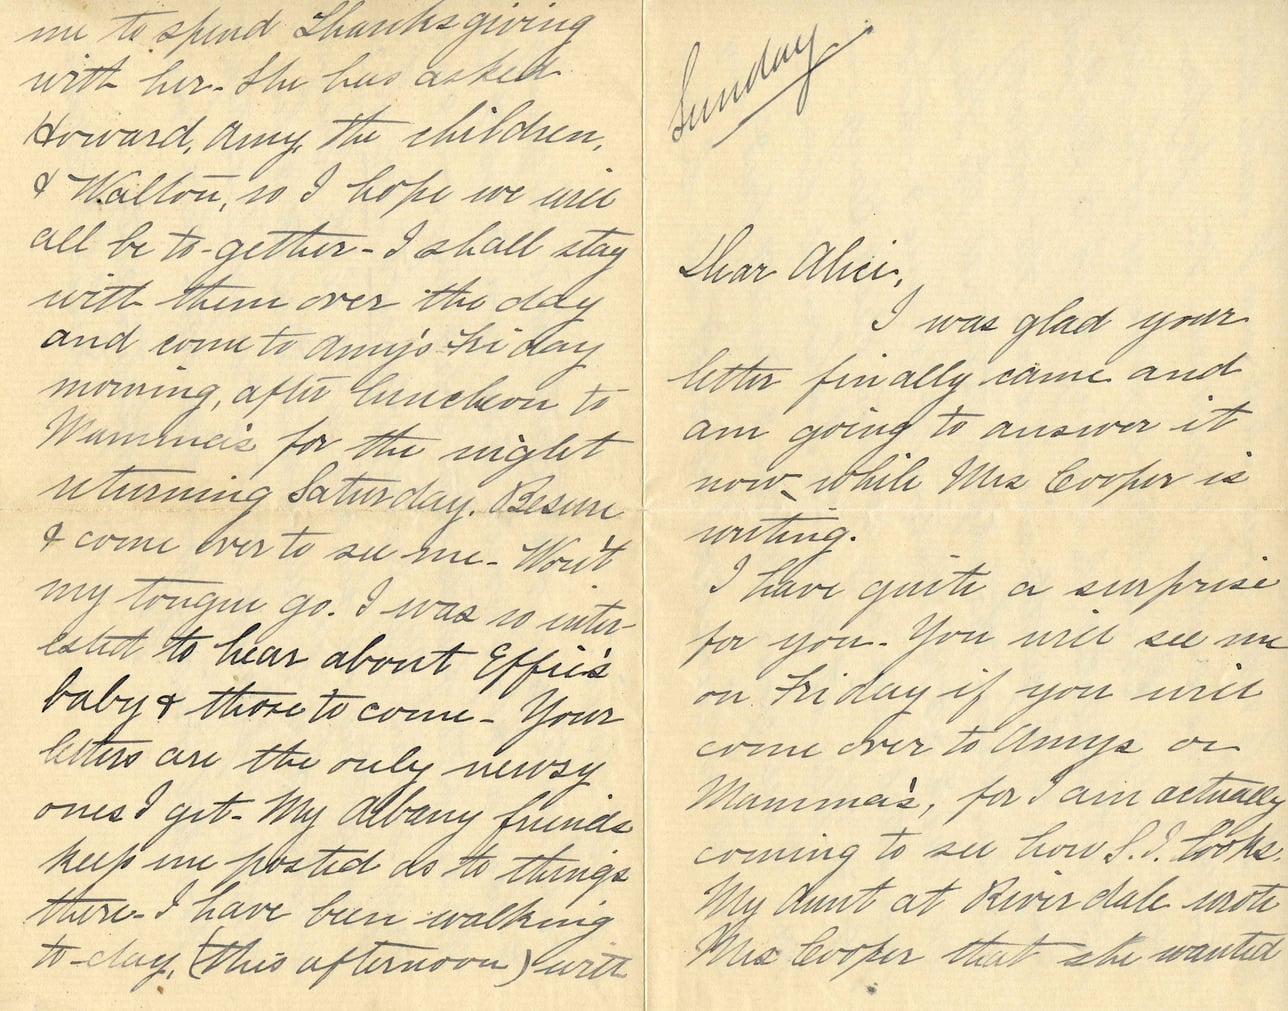 Sunday
Dear Alice,
I was glad your
letter finally came and
am going to answer it
now while Mrs Cooper is
writing.
I have quite a surprise
for you. You will see me
on Friday if you will
come over to Amys or
Mamma's, for I am actually
coming to see how S. I. looks.
My Aunt at Riverdale wrote
Mrs Cooper that she wanted
me to spend Thanksgiving
with her. She has asked
Howard, Amy, the children,
& Walton, so I hope we will
all be to-gether - I shall stay
with them over the day
and come to Amy's Friday
morning, after luncheon to
Mamma's for the night
returning Saturday. Besure
& come over to see me - Won't
my tongue go. I was so inter-
ested to hear about Effie's
baby & those to come - Your
letters are the only newsy
ones I get - My Albany friends
keep me posted as to things
there - I have been walking
to-day, (this afternoon) with